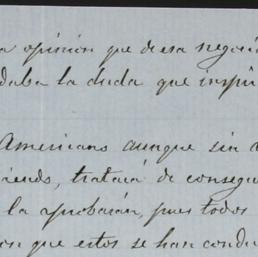 a opinion que de esa negocia
daba la duda que inspi
Americano aunque sin
riendo, tratará de consegu
la aprobarán, pues todos
on que estos se han condu